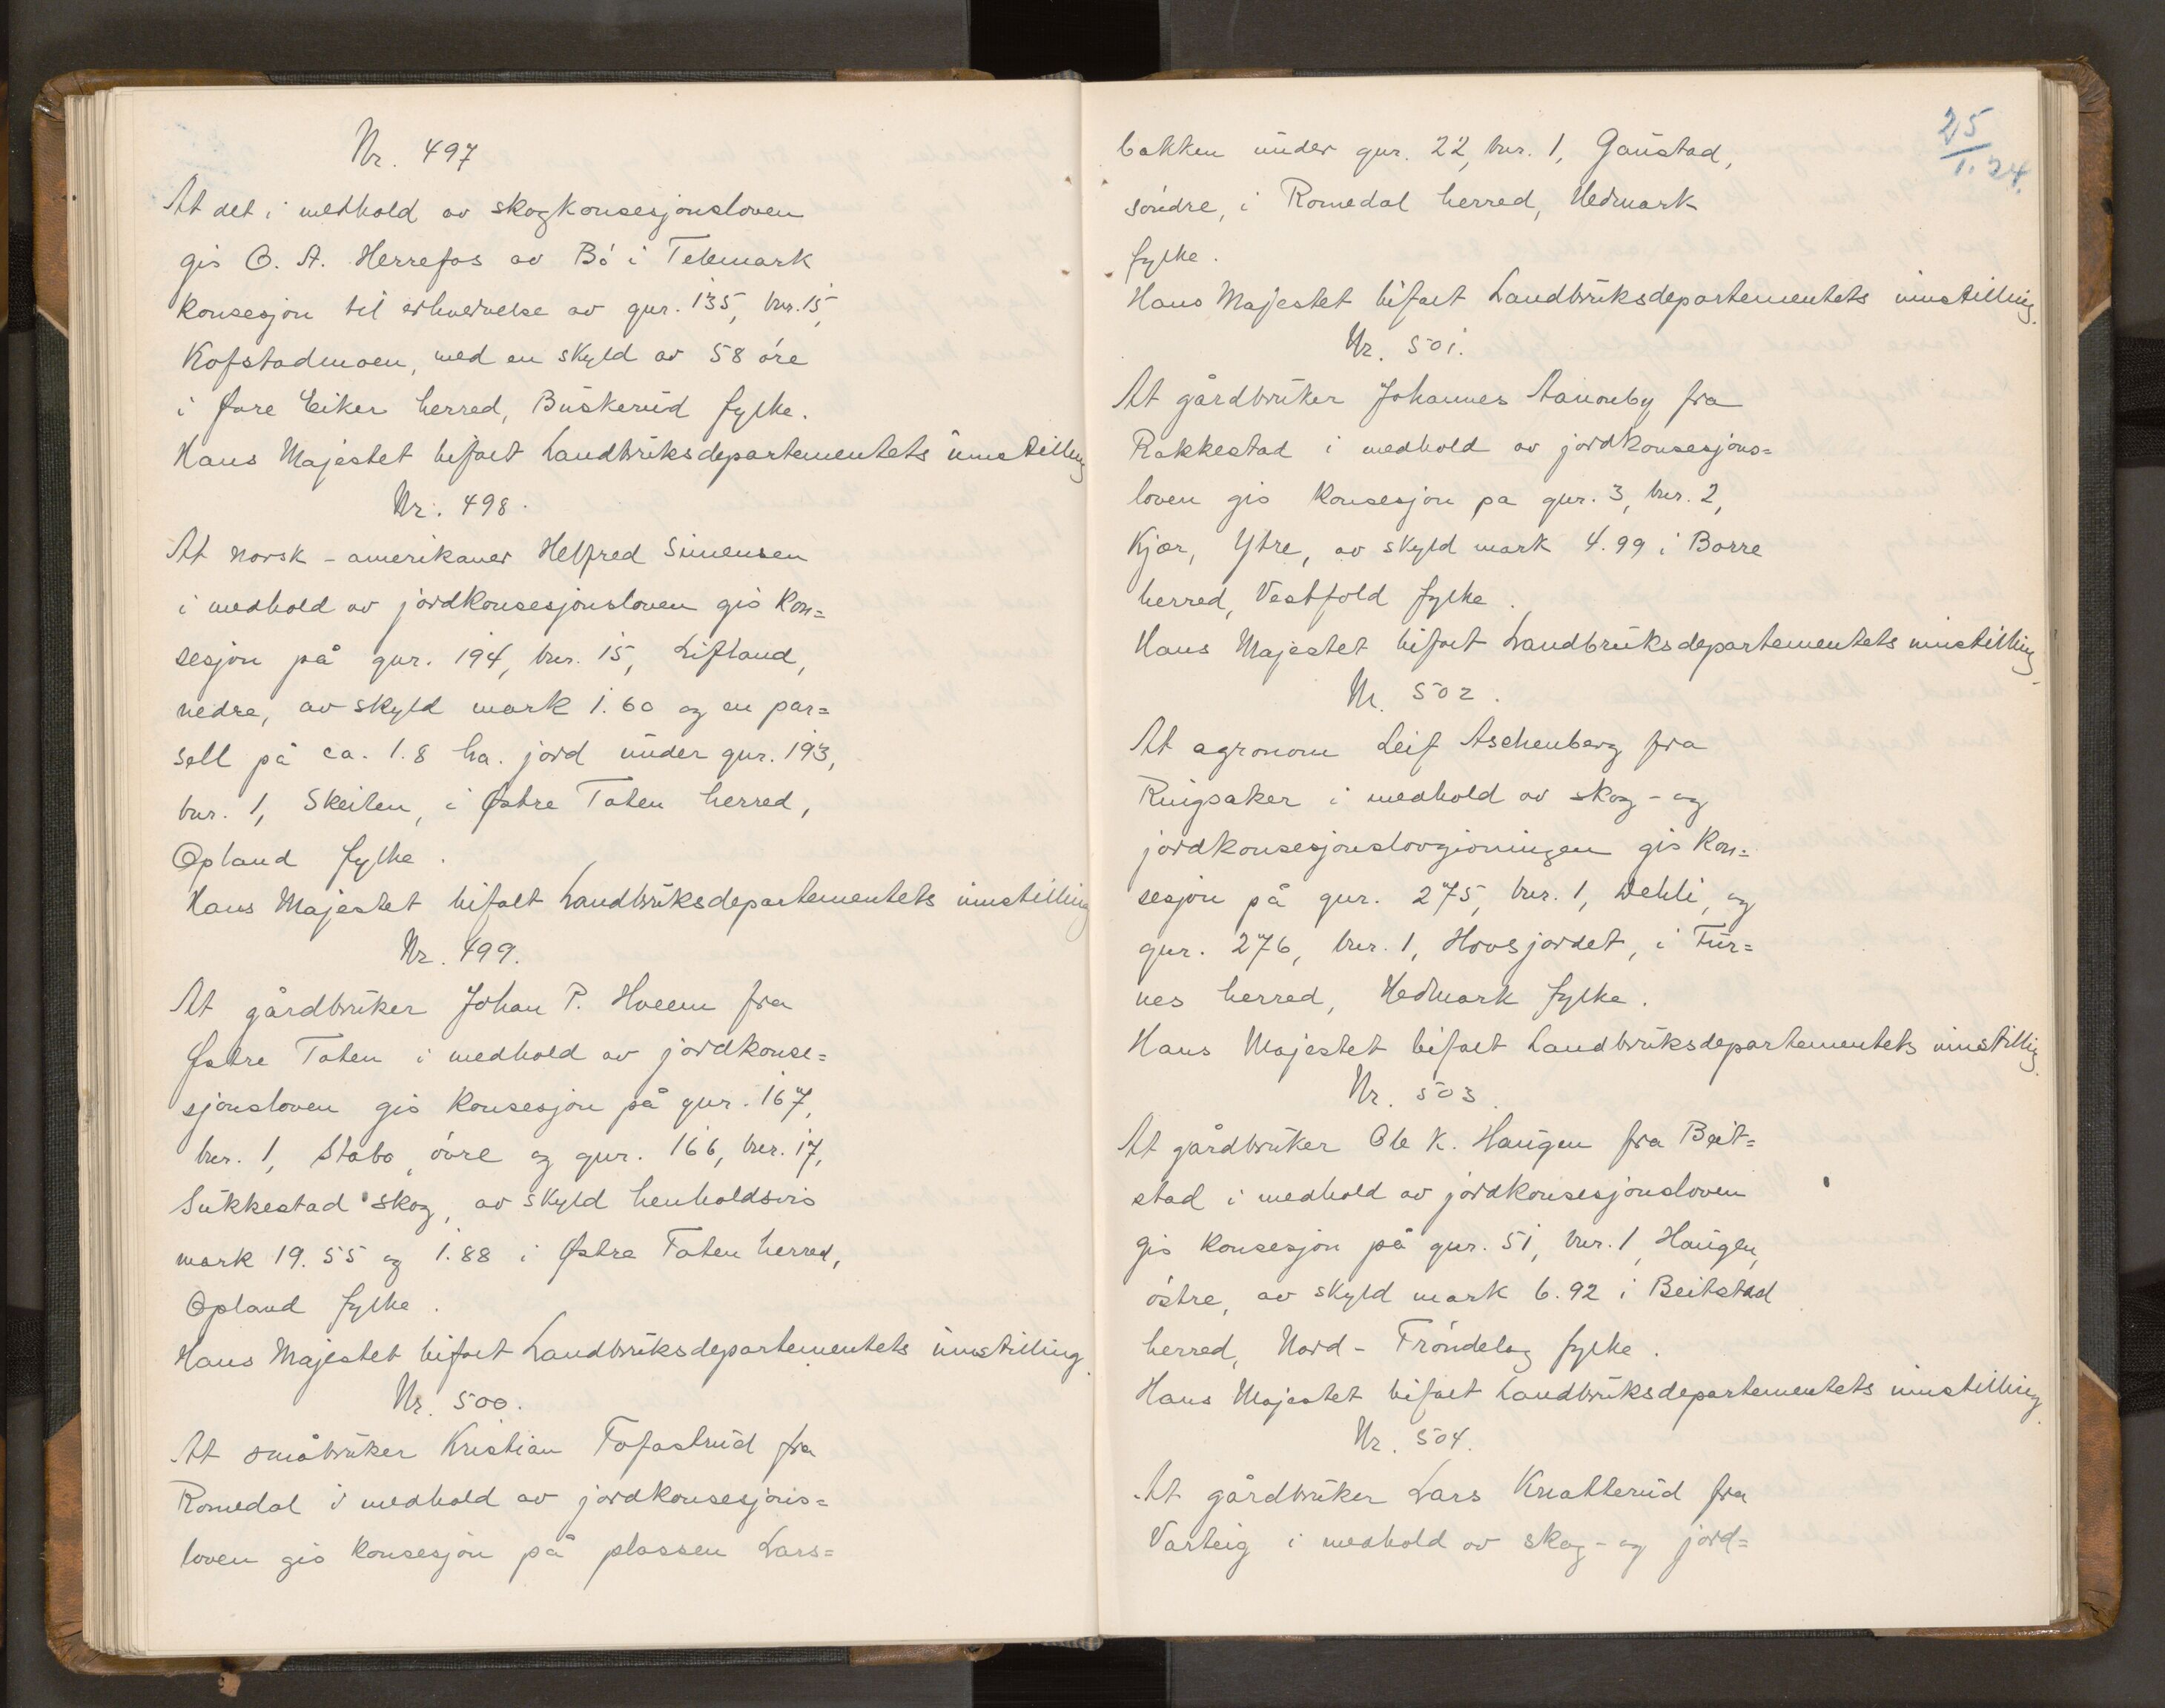 Nr. 497
At det i medhold av skogkonsesjonsloven
gis O. A. Herrefos av Bó i Telemark
konsesjon til erhvervelse av gnr. 135, bnr. 15,
Kofstadmoen, med en skyld av 58 óre
i Øvre Eiker herred, Buskerud fylke.
Hans Majestet bifalt Landbruksdepartementets innstilling
Nr. 498.
At norsk-amerikaner Helfred Simensen
i medhold av jordkonsesjonsloven gis kon=
sesjon på gnr. 194, bnr. 15, Lifland,
nedre, av skyld mark 1.60 og en par=
sell på ca. 1.8 ha. jord under gnr. 193,
bnr. 1, Skeiten, i Østre Toten herred,
Opland fylke.
Hans Majestet bifalt Landbruksdepartementets innstilling
Nr. 499.
At gårdbruker Johan P. Hveem fra
Østre Toten i medhold av jordkonse=
sjonsloven gis konsesjon på gnr. 167,
bnr. 1, Stabo, óvre og gnr. 166, bnr. 17,
Sukkestad skog, av skyld henholdsvis
mark 19.55 og 1.88 i Østre Toten herred,
Opland fylke.
Hans Majestet bifalt Landbruksdepartementets innstilling.
Nr. 500.
At småbruker Kristian Tofastrud fra
Romedal i medhold av jordkonsesjons=
loven gis konsesjon på plassen Lars=
25/1.34.
bakken under gnr. 22, bnr. 1, Gaustad,
sóndre, i Romedal herred, Hedmark
fylke.
Hans Majestet bifalt Landbruksdepartementets innstilling.
Nr. 501.
At gårdbruker Johannes Aanonby fra
Rakkestad i medhold av jordkonsesjons=
loven gis konsesjon på gnr. 3, bnr. 2,
Kjær, Ytre, av skyld mark 4.99 i Borre
herred, Vestfold fylke.
Hans Majestet bifalt Landbruksdepartementets innstilling.
Nr. 502.
At agronom Leif Aschenberg fra
Ringsaker i medhold av skog- og
jordkonsesjonslovgivningen gis kon=
sesjon på gnr. 275, bnr. 1, Dehli, og
gnr. 276, bnr. 1, Hovsjordet, i Fur=
nes herred, Hedmark fylke.
Hans Majestet bifalt Landbruksdepartementets innstilling.
Nr. 503.
At gårdbruker Ole K. Haugen fra Beit=
stad i medhold av jordkonsesjonsloven
gis konsesjon på gnr. 51, bnr. 1, Haugen,
óstre, av skyld mark 6.92 i Beitstad
herred, Nord-Tróndelag fylke.
Hans Majestet bifalt Landbruksdepartementets innstilling.
Nr. 504.
At gårdbruker Lars Knatterud fra
Varteig i medhold av skog- og jord=